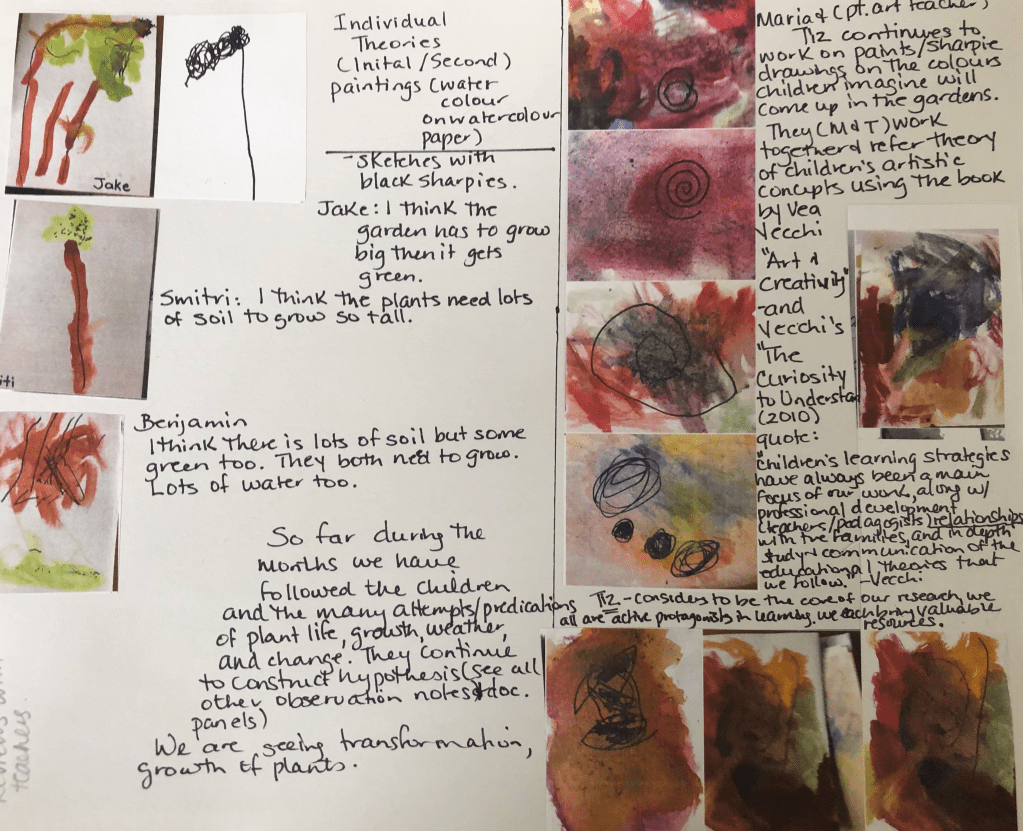 Jake
Individual
Theories
(Inital/Second)
paintings (water
colour
on watercolour
paper)
-sketches with
black sharpies.
Jake: I think the
garden has to grow
big then it gets
green.
Smitri: I think the plants need lots
of soil to grow so tall.
iti
Benjamin
I think there is lots of soil but some
green too. They both need to grow.
Lots of water too.
So far during the
months we have
followed the children
and the many attempts/predications
of plant life, growth, weather,
and change. They continue
to construct hypothesis (see all
other observation notes & doc.
panels)
We are seeing transformation,
growth of plants.
teaches.
Maria & (pt. art teacher)
T12 continues to
work on paints/sharpie
drawings on the colours
children imagine will
come up in the gardens.
They (M & T) work
together & refer theory
of children's artistic
concepts using the book
by Vea
Vecchi
"Art &
Creativity"
-and
Vecchi's
"The
Curiosity
to Understa
(2010)
quote:
"Children's learning strategies
have always been a main
focus of our work, along w/
professional development
(teachers/pedagogists) relationships
with the families, and in depth
study & communication of the
educational theories that
we follow." -Vecchi
T12 - considers to be the core of our research, we
all are active protagonists in learning. we each bring valuable
resources.